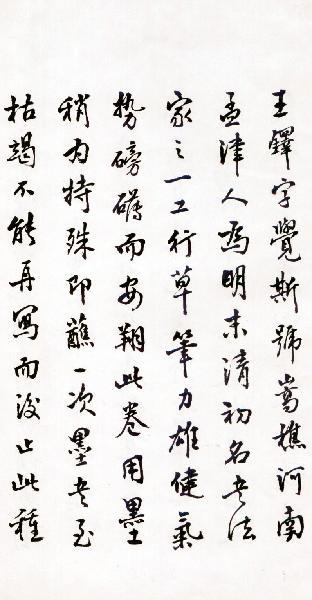 王鐸字覺斯號嵩樵河南
孟津人為明末清初名書法
家之一工行草筆力雄健氣
勢磅礴而安翔此卷用墨
稍為特殊即蘸一次墨書至
枯竭不能再寫而後止此種